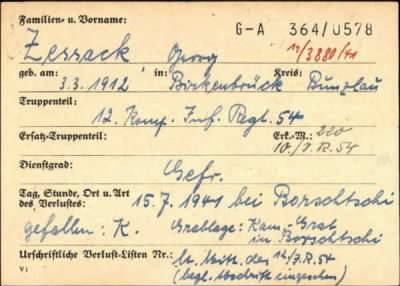 Familien- u. Vorname:
G-A 364/0578
Zessack Georg 12/3880/41
geb. am: 3.3.1912 in: Birkenbrück Kreis: Bunzlau
Truppenteil:
12. Komp. Inf. Regt. 54
Ersatz-Truppenteil: Erk.-M.: 220
10./I.R. 54
Dienstgrad: Gefr.
Tag, Stunde, Ort u. Art
des Verlustes: 15.7.1941 bei Borschtschi
gefallen: K. Grablage: Kam.-Grab
in Borschtschi
Urschriftliche Verlust-Listen Nr.: lt. Mitt. des 12/I.R. 54
V1 (begl. Abschrift eingesehen)